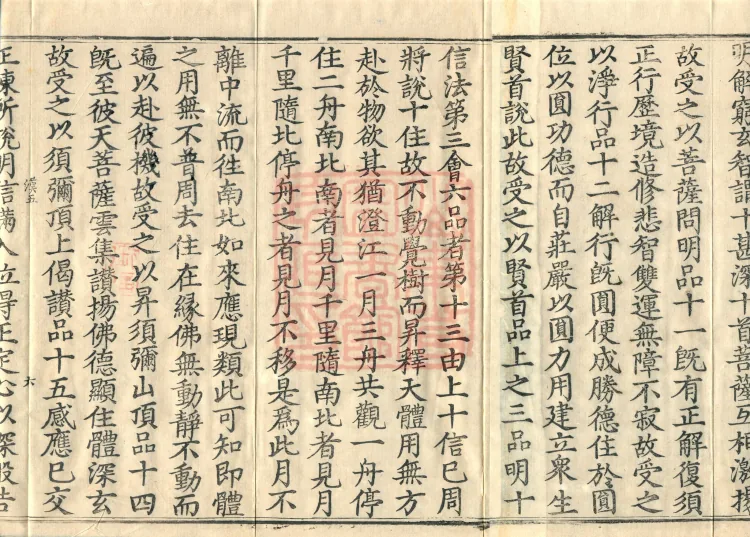 明解窮玄智詣十甚深十首菩薩互相激揚
故受之以菩薩問明品十一旣有正解復須
正行歷境造修悲智雙運無障不寂故受之
以淨行品十二解行旣圓便成勝德住於圓
位以圓功德而自莊嚴以圓力用建立衆生
賢首說此故受之以賢首品上之三品明十
信法第三會六品者第十三由上十信已周
將說十住故不動覺樹而昇釋天體用無方
赴於物欲其猶澄江一月三舟共觀一舟停
住二舟南北南者見月千里隨南北者見月
千里隨北停舟之者見月不移是爲此月不
離中流而徃南北如來應現類此可知即體
之用無不普周去住在緣佛無動靜不動而
遍以赴彼機故受之以昇須彌山頂品十四
旣至彼天菩薩雲集讃揚佛德顯住體深玄
故受之以須彌頂上偈讃品十五感應已交
漢五
六
正陳所說明信滿入位得正定心以深般若